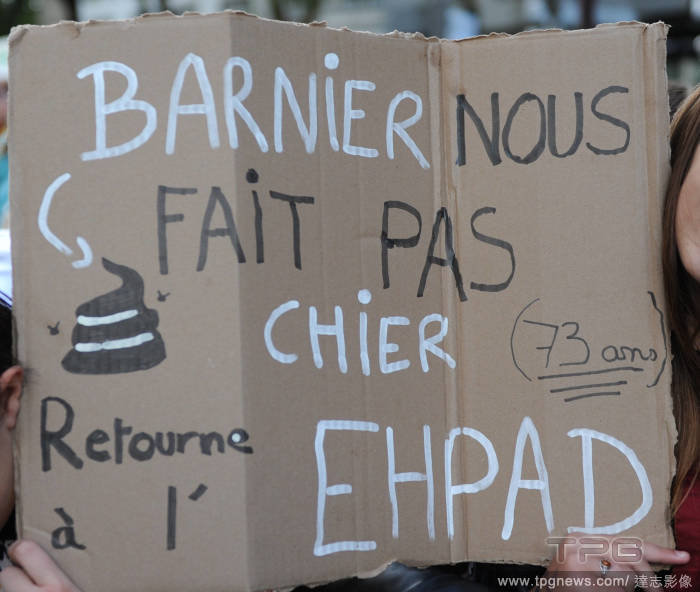 BARNiER NOUS
FAiT PAS
CHiER (73 ans)
Retourne
à l' EHPAD
TPG
www.tpgnews.com/達志影像